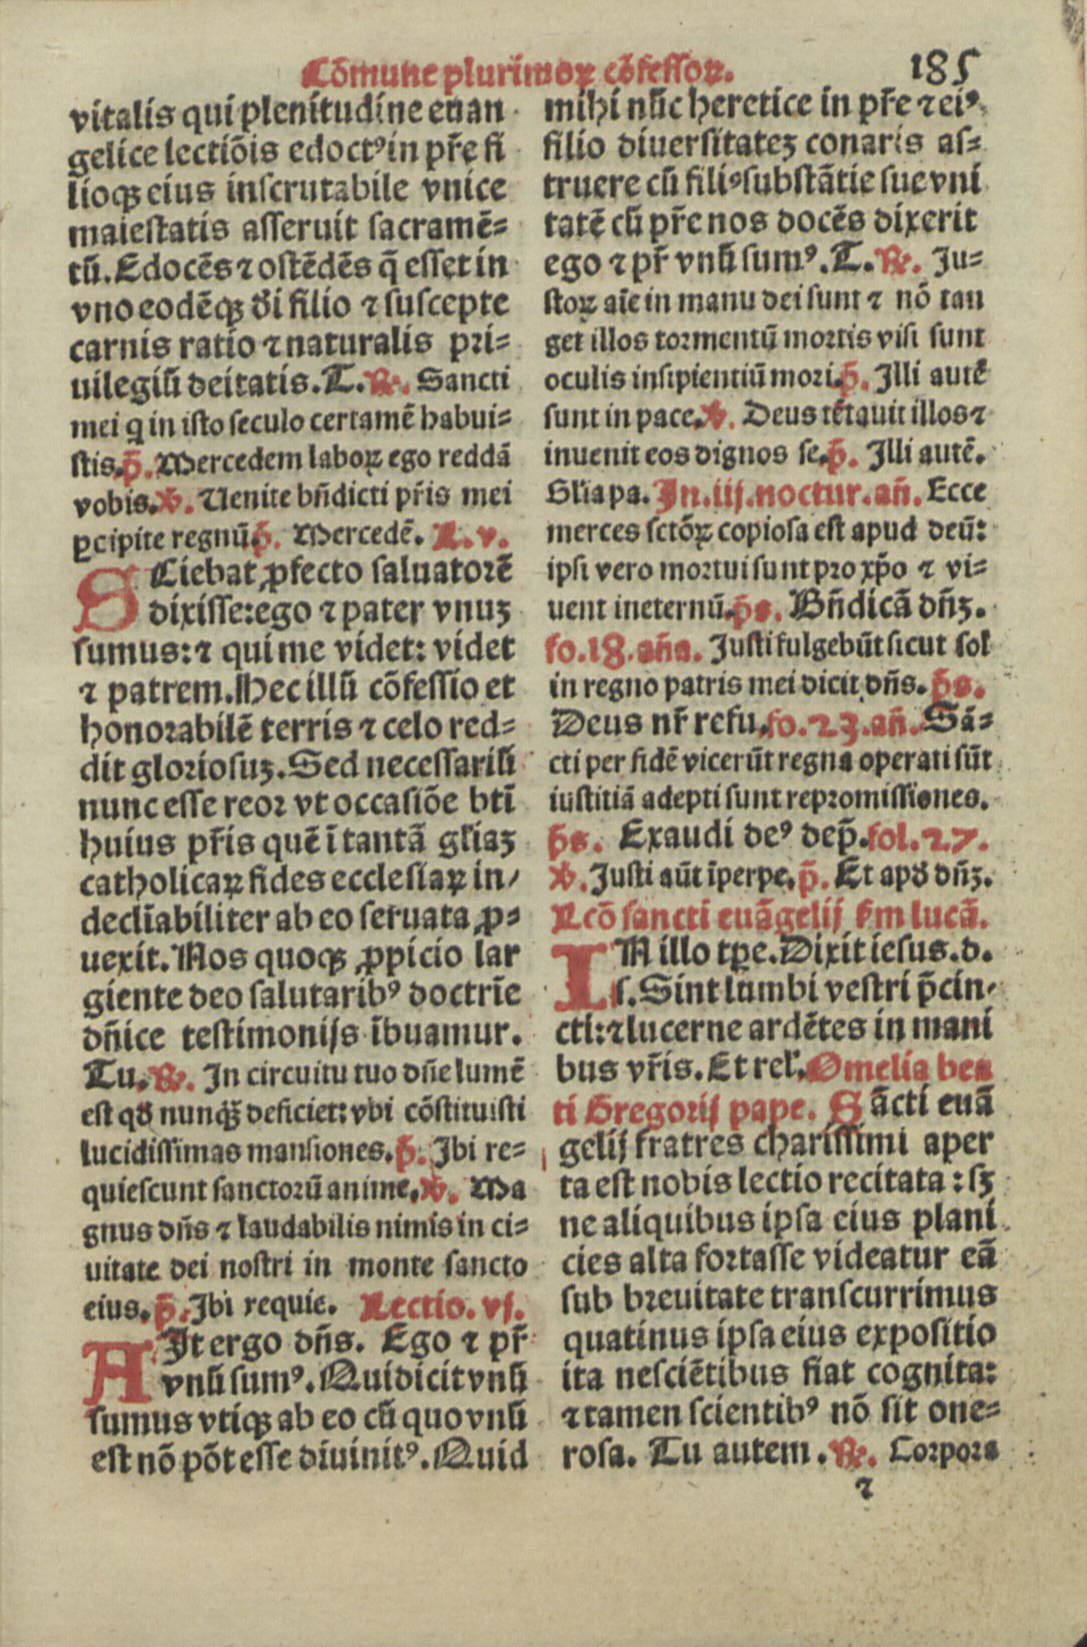 Cōmune plurimoꝝ cōfessoꝝ. 185
vitalis qui plenitudine euan
gelice lectiōis edoctꝰ in pr̄e fi
lioqꝫ eius inscrutabile vnice
maiestatis asseruit sacramē⸗
tū. Edocēs ⁊ ostēdēs q̄ esset in
vno eodēqꝫ di filio ⁊ suscepte
carnis ratio ⁊ naturalis pri⸗
uilegiū deitatis. T. ℟. Sancti
mei q in isto seculo certamē habui⸗
stis. p̄. Mercedem laboꝝ ego reddā
vobis. ℣. Uenite bn̄dicti pr̄is mei
ꝑcipite regnū. p̄. Mercedē. L. v.
SCiebat ꝓfecto saluatorē
dixisse: ego ⁊ pater vnuꝫ
sumus: ⁊ qui me videt: videt
⁊ patrem. Hec illū cōfessio et
honorabilē terris ⁊ celo red⸗
dit gloriosuꝫ. Sed necessariū
nunc esse reor vt occasiōe btī
huius pr̄is quē ī tantā gl̄iaꝫ
catholicaꝝ fides ecclesiaꝝ in⸗
decliabiliter ab eo seruata ꝓ⸗
uexit. Nos quoqꝫ ꝓpicio lar
giente deo salutaribꝰ doctrīe
dn̄ice testimonijs ībuamur.
Tu. ℟. In circuitu tuo dn̄e lumē
est qd nunqꝫ deficiet: vbi cōstituisti
lucidissimas mansiones. p̄. Ibi re⸗
quiescunt sanctorū anime. ℣. Ma
gnus dn̄s ⁊ laudabilis nimis in ci⸗
uitate dei nostri in monte sancto
eius. p̄. Ibi requie. Lectio. vj.
AIt ergo dn̄s. Ego ⁊ pr̄
vnū sumꝰ. Qui dicit vnū
sumus vtiqꝫ ab eo cū quo vnū
est nō pōt esse diuinitꝰ. Quid
mihi nūc heretice in pr̄e ⁊ eiꝰ
filio diuersitateꝫ conaris as⸗
truere cū filiꝰ substātie sue vni
tatē cū pr̄e nos docēs dixerit
ego ⁊ pr̄ vnū sumꝰ. T. ℟. Ju⸗
stoꝝ aīe in manu dei sunt ⁊ nō tan
get illos tormentū mortis visi sunt
oculis insipientiū mori. p̄. Illi autē
sunt in pace. ℣. Deus tētauit illos ⁊
inuenit eos dignos se. p̄. Illi autē.
Gl̄ia pa. In .iij. noctur. an̄. Ecce
merces sctōꝝ copiosa est apud deū:
ipsi vero mortui sunt pro xp̄o ⁊ vi⸗
uent in eternū. p̄s. Bn̄dicā dn̄ꝫ.
fo. 18. an̄a. Justi fulgebūt sicut sol
in regno patris mei dicit dn̄s. p̄s.
Deus nr̄ refu. fo. 23. an̄. Sā⸗
cti per fidē vicerūt regna operati sūt
iustitiā adepti sunt repromissiones.
p̄s. Exaudi deꝰ dep̄. fol. 27.
℣. Justi aūt īperpe. p̄. Et apd dn̄ꝫ.
Lcō sancti euāgelij sm lucā.
IN illo tꝑe. Dixit iesus. d.
s. Sint lumbi vestri p̄cin⸗
cti: ⁊ lucerne ardētes in mani
bus vr̄is. Et rel̄. Omelia bea
ti Gregorij pape. Sācti euā
gelij fratres charissimi aper
ta est nobis lectio recitata: sꝫ
ne aliquibus ipsa eius plani
cies alta fortasse videatur eā
sub breuitate transcurrimus
quatinus ipsa eius expositio
ita nesciētibus fiat cognita:
⁊ tamen scientibꝰ nō sit one⸗
rosa. Tu autem. ℟. Corpora
⁊